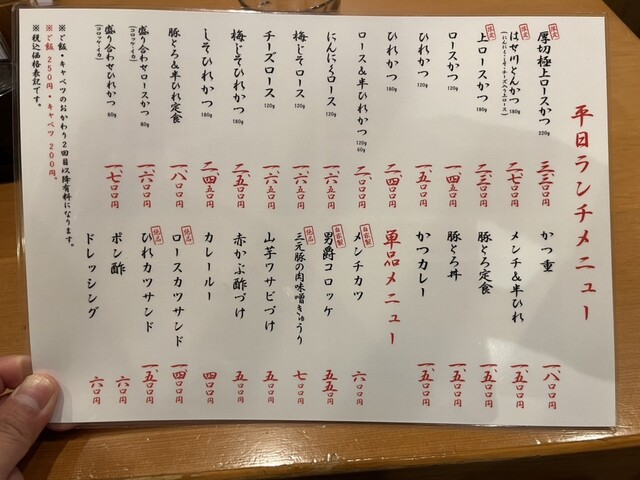 平日ランチメニュー
限定 厚切極上ロースかつ 220g 三、三〇〇円
限定 はせ川とんかつ 180g (にんにく・チーズ入り上ロース) 二、七〇〇円
限定 上ロースかつ 180g 二、三〇〇円
ロースかつ 120g 一、四五〇円
ひれかつ 120g 一、五〇〇円
ひれかつ 180g 二、四〇〇円
ロース&半ひれかつ 120g 60g 二、一〇〇円
にんにくロース 120g 一、六五〇円
梅じそロース 120g 一、六五〇円
チーズロース 120g 一、六五〇円
梅じそひれかつ 180g 二、五〇〇円
しそひれかつ 180g 二、四五〇円
豚とろ&半ひれ定食 一、八〇〇円
盛り合わせロースかつ 80g (コロッケ・イカ) 一、六〇〇円
盛り合わせひれかつ 60g (コロッケ・イカ) 一、七〇〇円
※ご飯・キャベツのおかわり2回目以降有料になります。
※ご飯 250円・キャベツ 200円。
※税込価格表記です。
かつ重 一、八〇〇円
メンチ&半ひれ 一、五〇〇円
豚とろ定食 一、五〇〇円
豚とろ丼 一、五〇〇円
かつカレー 一、五〇〇円
単品メニュー
自家製 メンチカツ 六〇〇円
自家製 男爵コロッケ 五五〇円
絶品 三元豚の肉味噌きゅうり 七〇〇円
山芋ワサビづけ 五〇〇円
赤かぶ酢づけ 五〇〇円
カレールー 四〇〇円
絶品 ロースカツサンド 一、四〇〇円
絶品 ひれカツサンド 一、五〇〇円
ポン酢 六〇円
ドレッシング 六〇円